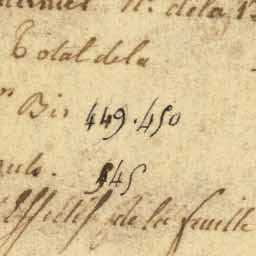 N.º de la
Total de la
Bis 449.450
945
Effectif de la feuille